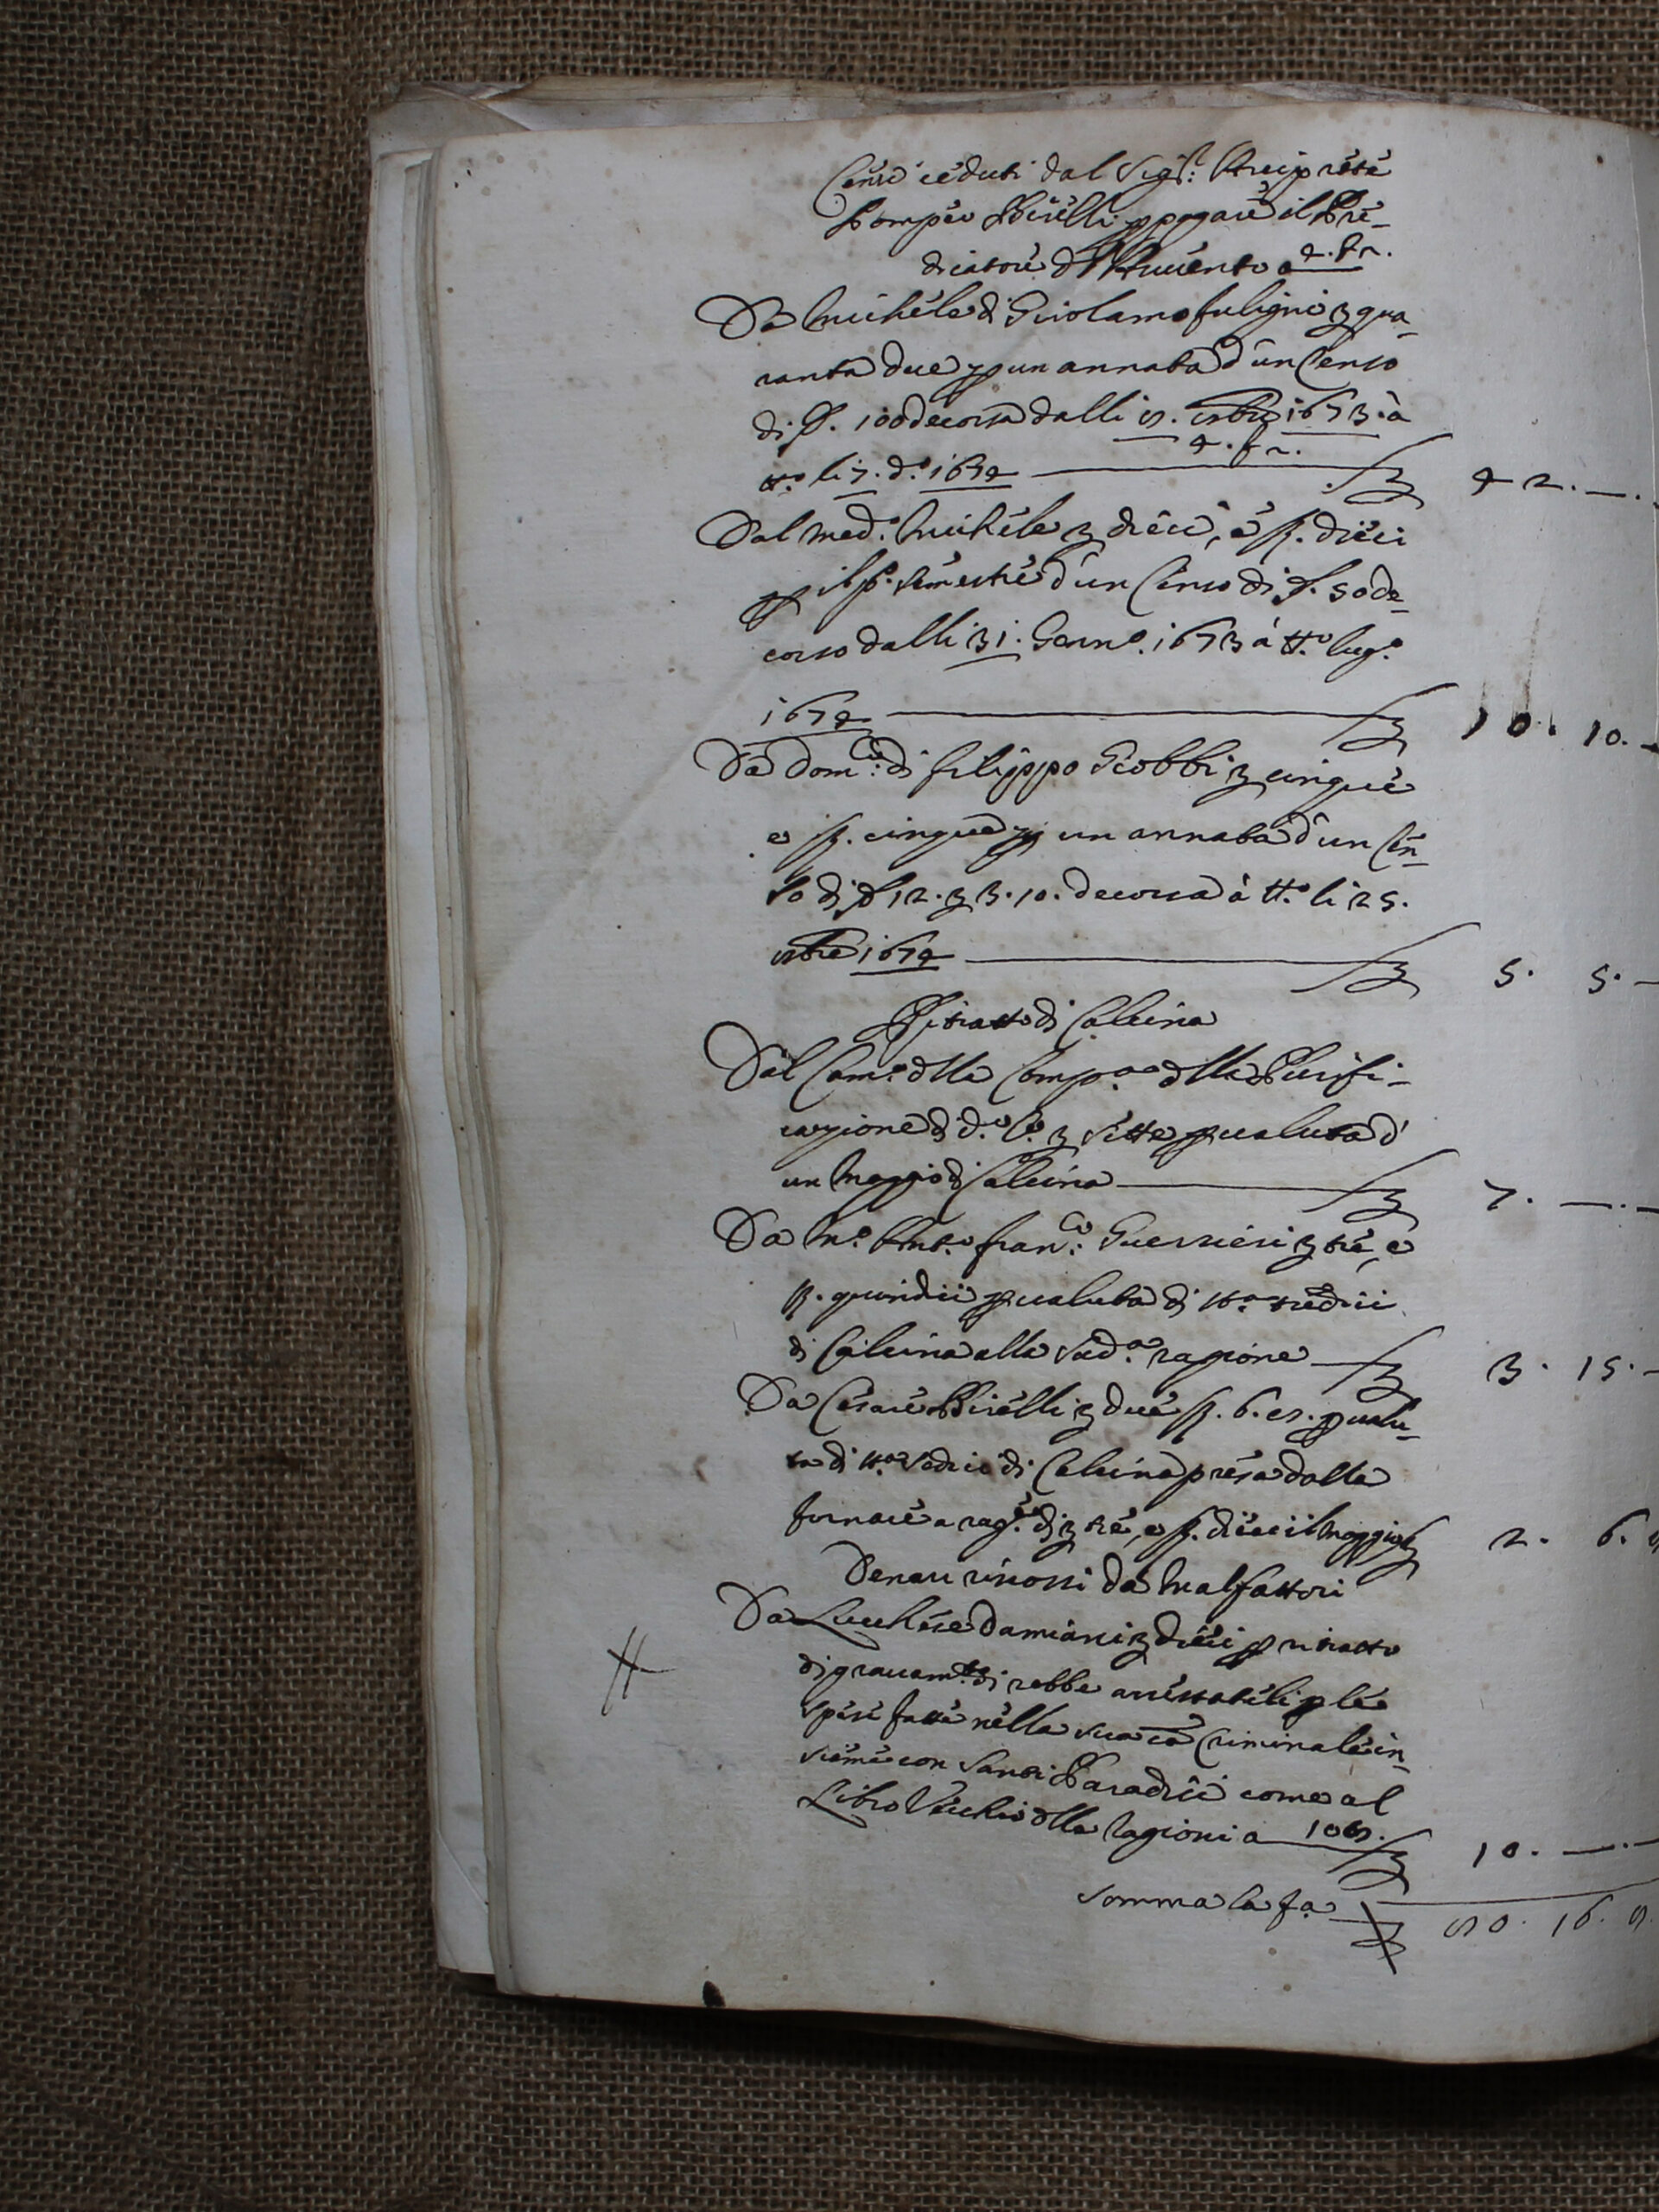 Censi ceduti dal Sigr: Arciprete
Pompeo Birelli p pagare il Pre-
dicatore dll'Auuento a
Da Michele di Girolamo fuligni qua-
ranta due p un annata d'un Censo
di 100 decorsa dalli 1673. à
tt.o li 7. d.o 1674 42. —
Dal med.o Michele dieci, e s. dieci
p il p.o semestre d'un Censo di 50 de-
corso dalli 31. Genn.o 1673 à tt.o lug.o
1674 10. 10. -
Da Dom.co: di filippo Giobbi cinque
e s. cinque p un annata d'un Cen-
so di 12. 3. 10. decorsa à tt.o li 25.
1674 5. 5. -
Ritratto di Calcina
Dal Cam.o dlla Comp.a dlla Purifi-
cazione di d.o sette p ualuta d'
un Moggio di Calcina 7. — -
Da M.o fran.co: Guerrieri tre, e
s. quindici p ualuta di tredici
di Calcina alla sud.a ragione 3. 15. -
Da Cesare Birelli due s. 6. p ualu-
ta di sedici di Calcina presa dalla
fornace a rag.e di tre, e s. dieci il Moggio 2. 6.
Denari riscossi da Malfattori
Da Lucchese Damiani dieci p ritratto
di grauam.to di robbe p le
spese fatte nella sua ca Criminale in-
sieme con Santi Paradisi come al
Libro Vecchio dlla ragioni a 10. — -
Somma la fa 16.